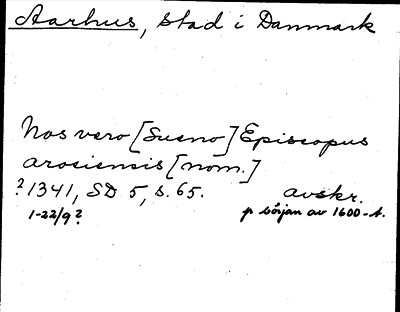 Aarhus, stad i Danmark
Nos vero [Sueno] Episcopus
arosiensis [nom.]
? 1341, SD 5, s. 65. avskr.
1-22/9? p början av 1600-t.